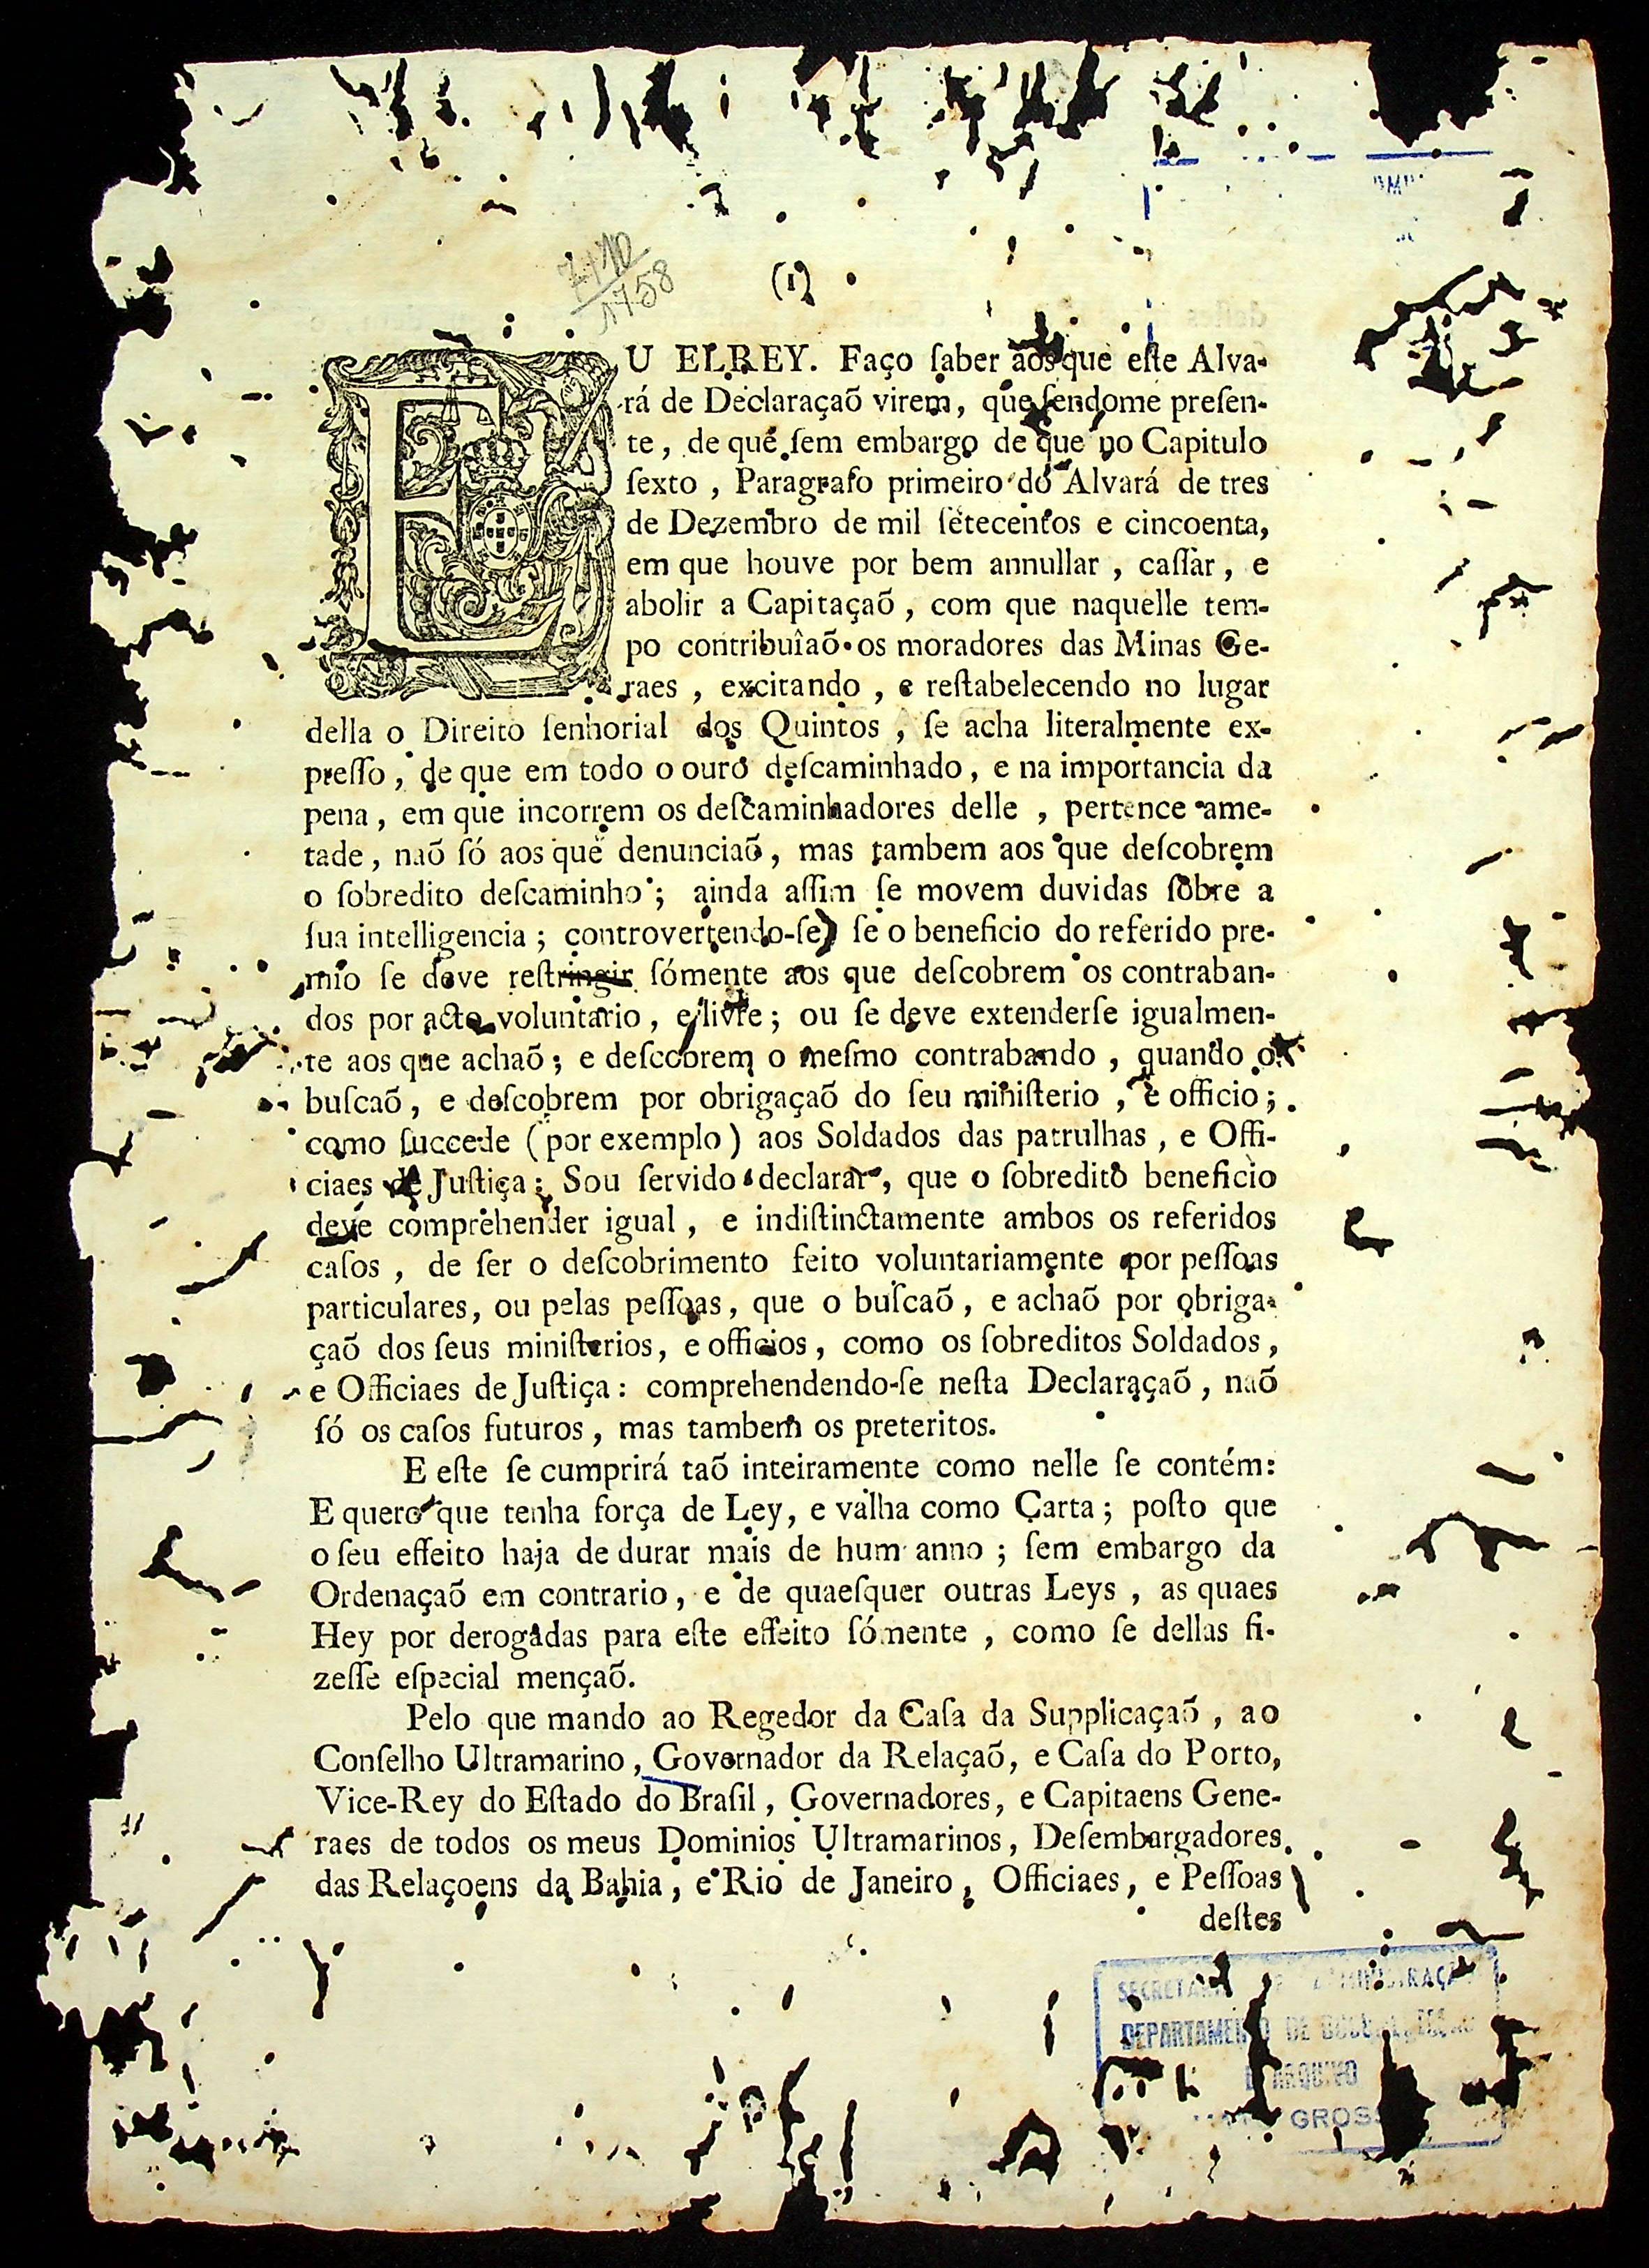 (1)
1758
EU ELREY. Faço ſaber aos que eſte Alva-
rá de Declaraçaõ virem, que ſendome preſen-
te, de que ſem embargo de que no Capitulo
ſexto, Paragrafo primeiro do Alvará de tres
de Dezembro de mil ſetecentos e cincoenta,
em que houve por bem annullar, caſſar, e
abolir a Capitaçaõ, com que naquelle tem-
po contribuîaõ os moradores das Minas Ge-
raes, excitando, e reſtabelecendo no lugar
della o Direito ſenhorial dos Quintos, ſe acha literalmente ex-
preſſo, de que em todo o ouro deſcaminhado, e na importancia da
pena, em que incorrem os deſcaminhadores delle, pertence ame-
tade, naõ ſó aos que denunciaõ, mas tambem aos que deſcobrem
o ſobredito deſcaminho; ainda aſſim ſe movem duvidas ſobre a
ſua intelligencia; controvertendo-ſe, ſe o beneficio do referido pre-
mio ſe deve reſtringir ſómente aos que deſcobrem os contraban-
dos por acto voluntario, e livre; ou ſe deve extenderſe igualmen-
te aos que achaõ; e deſccobrem o meſmo contrabando, quando o
buſcaõ, e deſcobrem por obrigaçaõ do ſeu miniſterio, e officio;
como ſuccede (por exemplo) aos Soldados das patrulhas, e Offi-
ciaes de Juſtiça: Sou ſervido declarar, que o ſobredito beneficio
deve comprehender igual, e indiſtinctamente ambos os referidos
caſos, de ſer o deſcobrimento feito voluntariamente por peſſoas
particulares, ou pelas peſſoas, que o buſcaõ, e achaõ por obriga-
çaõ dos ſeus miniſterios, e officios, como os ſobreditos Soldados,
e Officiaes de Juſtiça: comprehendendo-ſe neſta Declaraçaõ, naõ
ſó os caſos futuros, mas tambem os preteritos.
E eſte ſe cumprirá taõ inteiramente como nelle ſe contém:
E quero que tenha força de Ley, e valha como Carta; poſto que
o ſeu effeito haja de durar mais de hum anno; ſem embargo da
Ordenaçaõ em contrario, e de quaeſquer outras Leys, as quaes
Hey por derogadas para eſte effeito ſómente, como ſe dellas fi-
zeſſe eſpecial mençaõ.
Pelo que mando ao Regedor da Caſa da Supplicaçaõ, ao
Conſelho Ultramarino, Governador da Relaçaõ, e Caſa do Porto,
Vice-Rey do Eſtado do Braſil, Governadores, e Capitaens Gene-
raes de todos os meus Dominios Ultramarinos, Deſembargadores
das Relaçoens da Bahia, e Rio de Janeiro, Officiaes, e Peſſoas
deſtes
DEPARTAMENTO DE
ARQUIVO